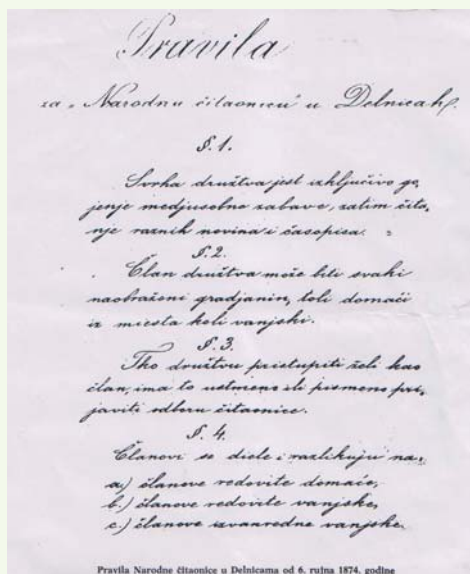 Pravila
za „Narodnu čitaonicu" u Delnicah.
§. 1.
Svrha družtva jest izključivo go,
jenje medjusobne zabave, zatim čita,
nje raznih novina i časopisa. =
§. 2.
Član družtva može biti svaki
naobraženi gradjanin, toli domaći
iz miesta koli vanjski.
§. 3.
Tko družtvu pristupiti želi kao
član, ima to ustmeno ili pismeno pri,
javiti odboru čitaonice.
§. 4.
Članovi se diele i razlikuju na:
a.) članove redovite domaće,
b.) članove redovite vanjske,
c.) članove izvanredne vanjske.
Pravila Narodne čitaonice u Delnicama od 6. rujna 1874. godine